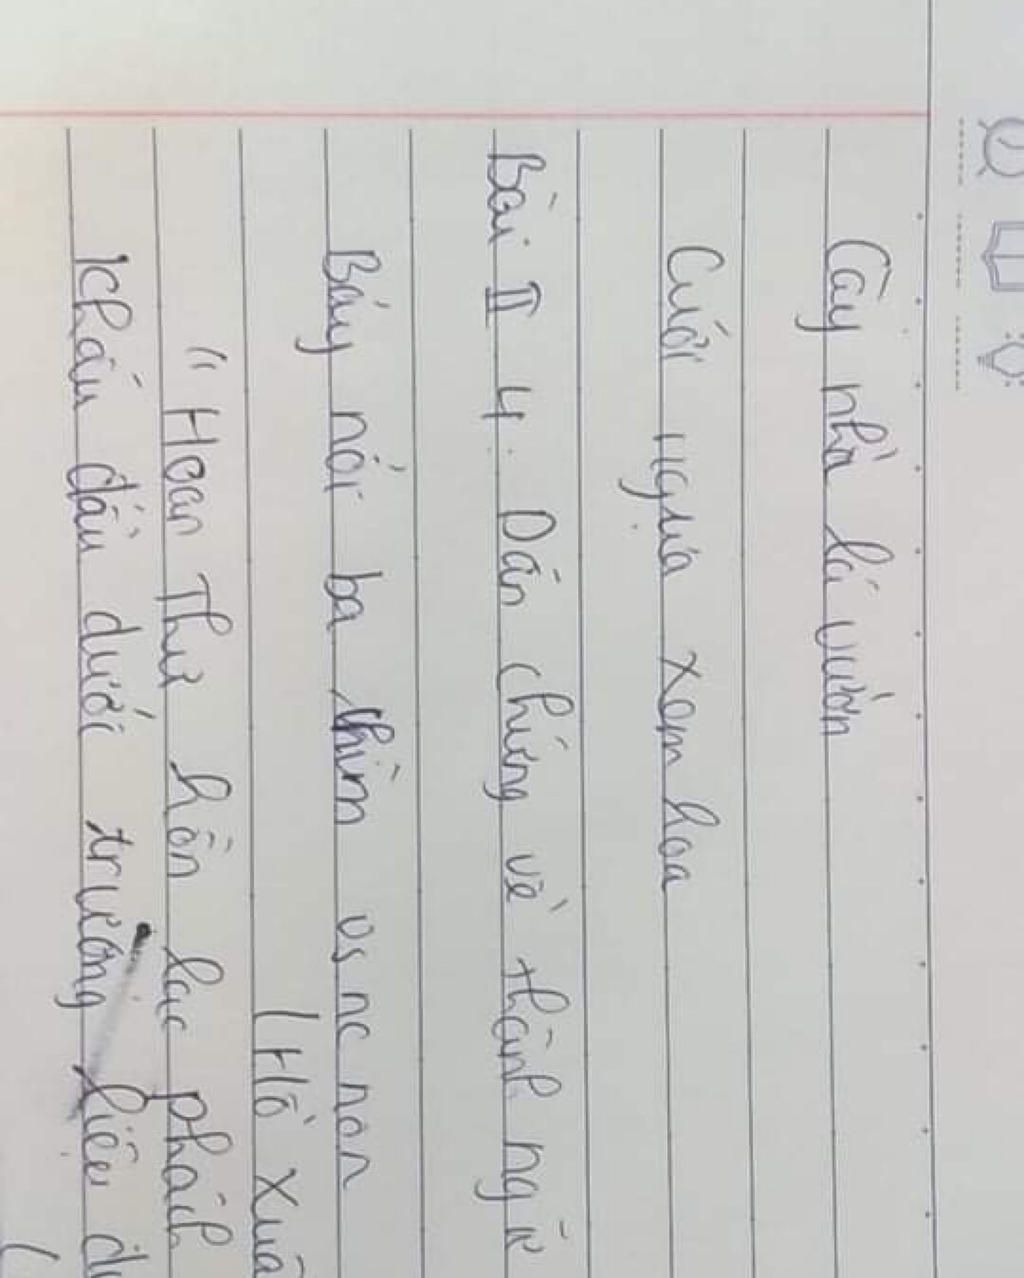 Cây nhà lá vườn
Cưới ngựa xem hoa
Bài II 4. Dẫn chứng về thành ngữ
Bảy nổi ba chìm vs nc non
(Hồ Xuâ
"Hoan Thư hồn lạc phách
Khấu đầu dưới trướng liệu